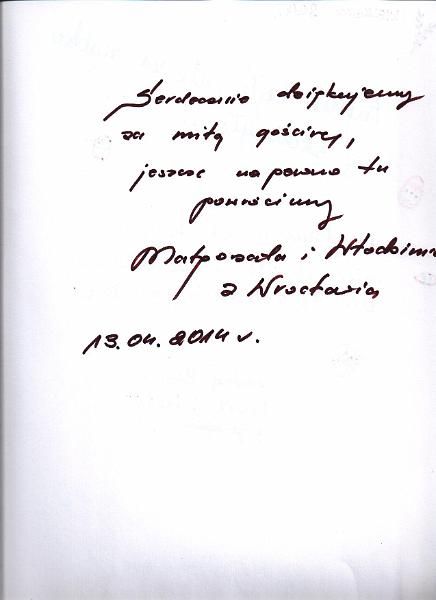 Serdecznie dziękujemy
za miłą gościnę,
jeszcze na pewno tu
powrócimy
Małgorzata i Włodzimi
z Wrocławia
13.04.2014 r.